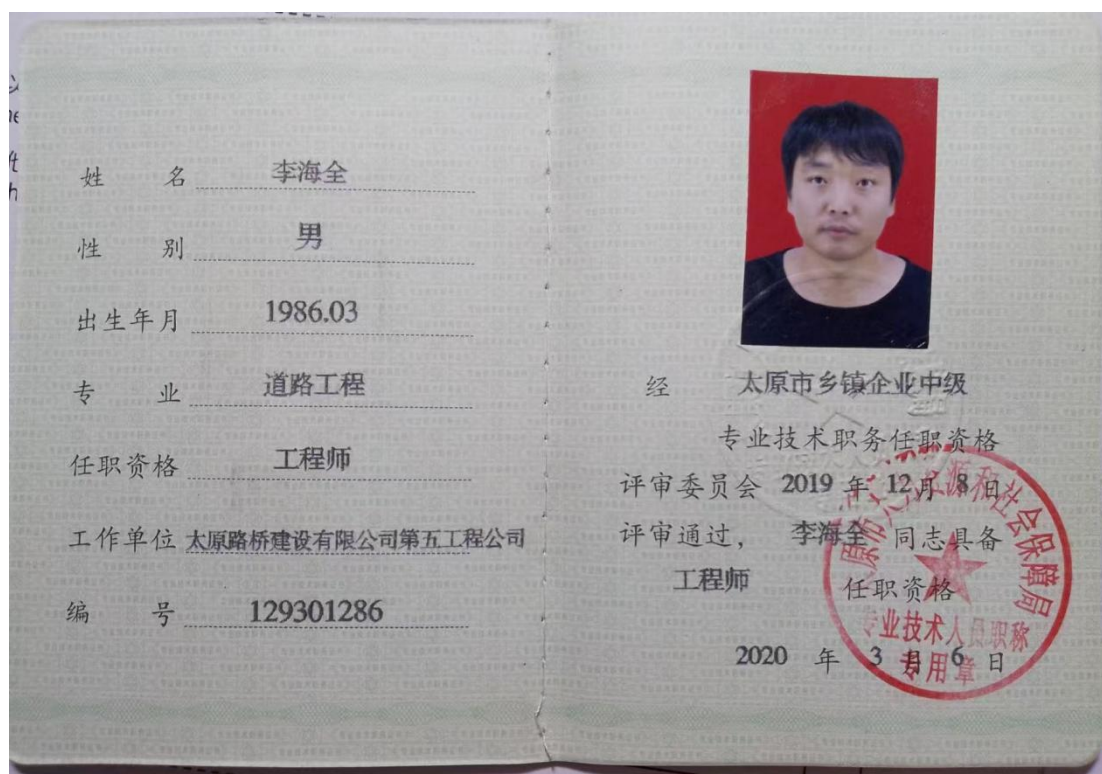 姓 名 李海全
性 别 男
出生年月 1986.03
专 业 道路工程
任职资格 工程师
工作单位 太原路桥建设有限公司第五工程公司
编 号 129301286
经 太原市乡镇企业中级
专业技术职务任职资格
评审委员会 2019 年 12 月 8 日
评审通过， 李海全 同志具备
工程师 任职资格
2020 年 3 月 6 日
太原市人力资源和社会保障局
专业技术人员职称
专用章